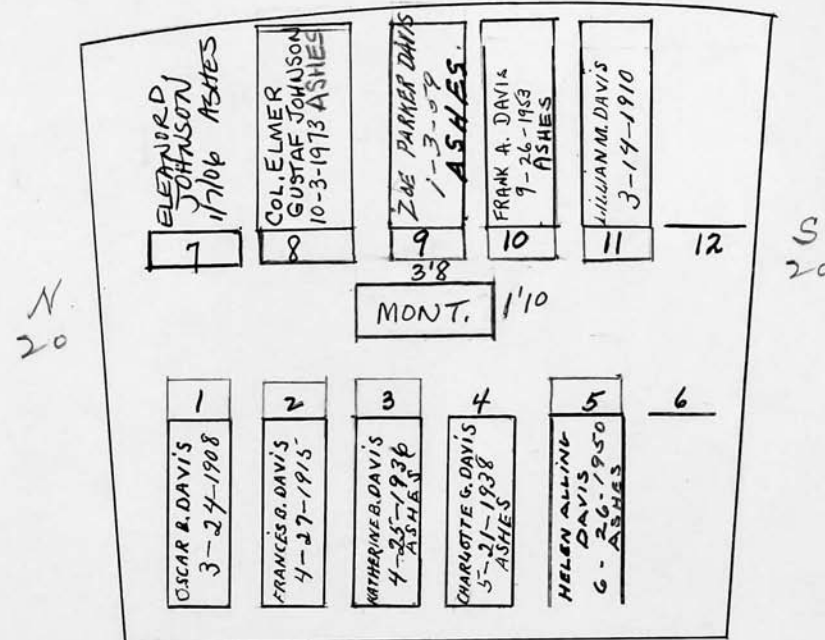 ELEANOR D,
JOHNSON
1/7/06 ASHES
COL. ELMER
GUSTAF JOHNSON
10-3-1973 ASHES
ZOE PARKER DAVIS
1-3-59
ASHES.
FRANK A. DAVIS
9-26-1953
ASHES
LILLIAN M. DAVIS
3-14-1910
7
8
9
10
11
12
3'8
MONT.
1'10
N
20
S
20
1
2
3
4
5
6
OSCAR B. DAVIS
3-24-1908
FRANCES B. DAVIS
4-27-1915
KATHERINE B. DAVIS
4-25-1936
ASHES
CHARLOTTE G. DAVIS
5-21-1938
ASHES
HELEN ALLING
DAVIS
6-26-1950
ASHES